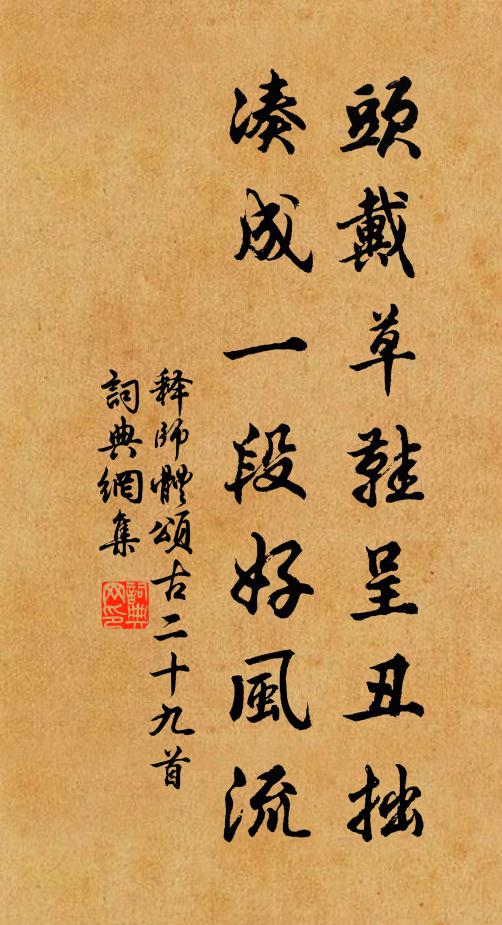 頭戴草鞋呈丑拙
凑成一段好風流
释師體頌古二十九首
詞典網集
詞典网印